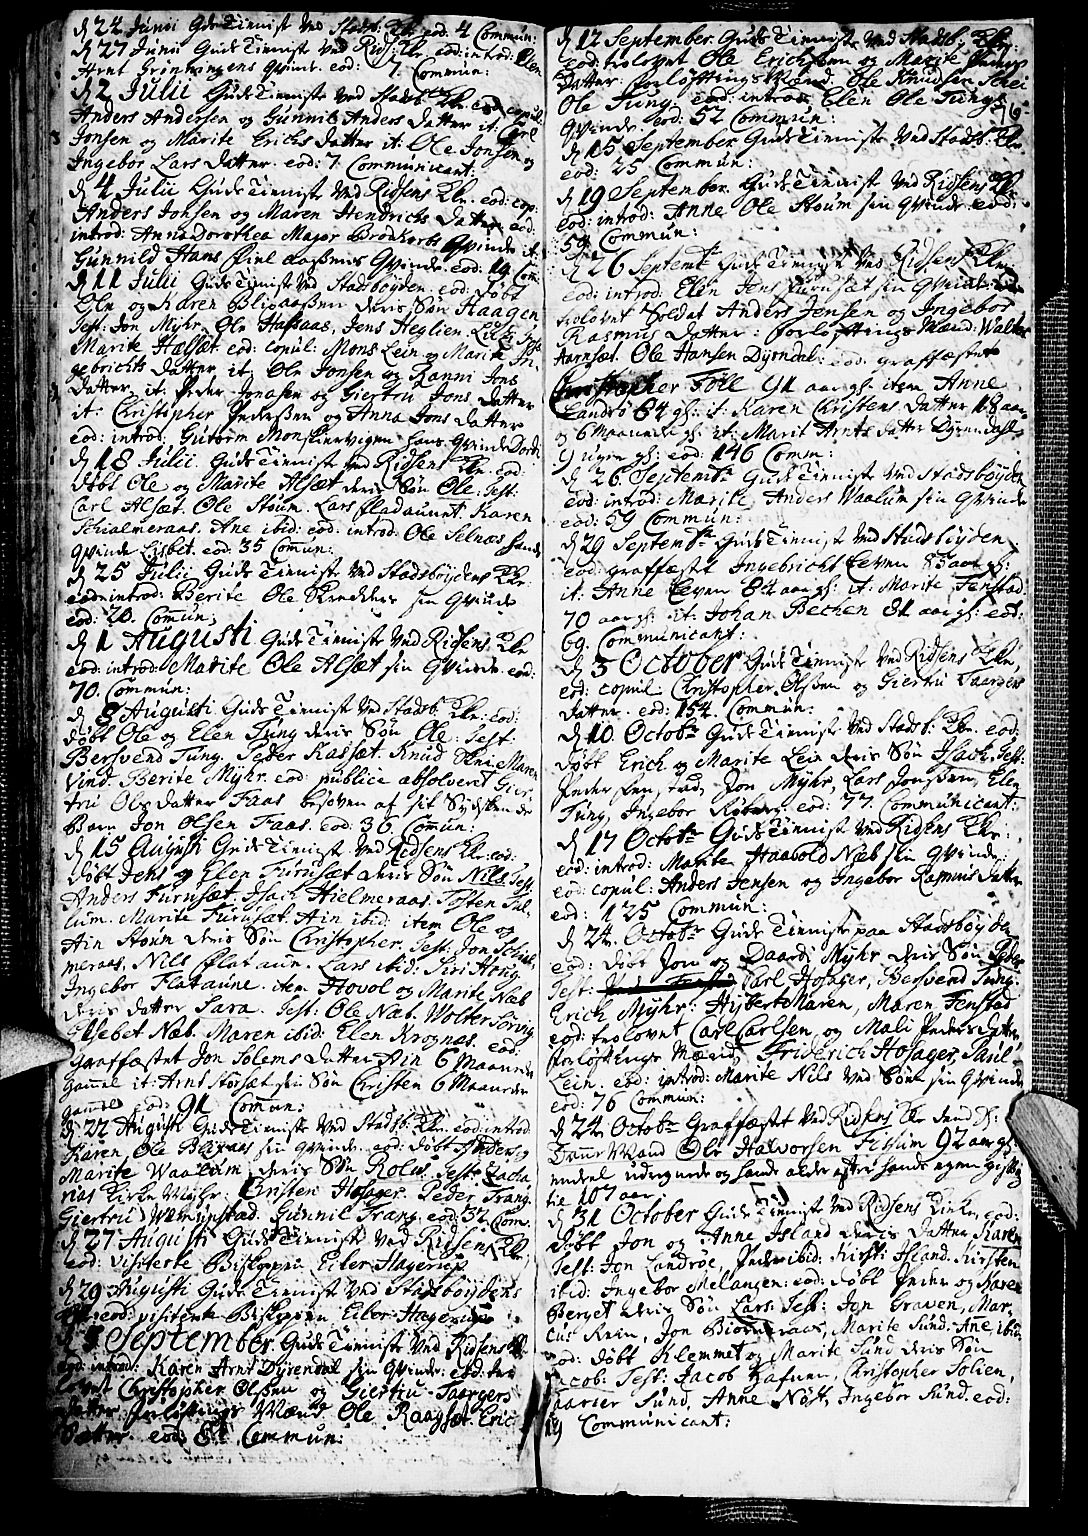 d 24 Junii Guds Tienniste ved Stadsb: Kr: eod: 4 Commun:
d 27 Junii Guds Tienniste ved Rids: Kr: eod: introd: Elen
Arnt Grønningens qvinde. eod: 7. Commun:
d 2 Julii Guds Tienniste ved Stadsb: Kr: eod: copul:
Anders Andersen og Gunnil Anders datter it: Carl
Jonsen og Marite Erichs datter it: Ole Jonsen og
Ingebor Lars datter. eod: 7. Communicant:
d 4 Julii Guds Tienniste ved Ridsens Kr: eod: cop:
Anders Jonsen og Maren Hendrichs datter eod:
introd: Anna Dorothea Major Brodkorbs qvinde it:
Gunnild Hans qvinde. eod: 19 Com:
d 11 Julii Guds Tienniste ved Stadsboyden. eod: døbt
Ole og Karen Blixaassen deris Søn Haagen
Test: Jon Myhr. Ole Hafsaas, Jens Heglien
Marite Halsæt. eod: copul: Mons Lein og Marite In-
gebrichts datter it Ole Jonsen og Ranni Jons
datter it. Peder Jonasen og Giertru Jons datter
it: Christopher Pedersen og Anna Jons datter
eod: introd: Guttorm Monsliervigen hans qvinde Dordi
d 18 Julii. Guds Tienniste ved Ridsens Kr: eod:
døbt Ole og Marite Alsæt deris Søn Ole: Test:
Carl Alsæt. Ole Stoum. Lars Fladaunet. Karen
Schialmeraas. Ane ibid: eod: introd: Ole Selnæs hands
qvinde Lisbet. eod: 35 Comun:
d 25 Julii Guds Tienniste ved Stadsbøydens Kr:
eod: introd: Berite Ole Skredders sin qvinde
eod: 20. Comun;
d 1 Augusti Guds Tienniste ved Ridsens Kr
eod: introd: Marite Ole Alsæt sin qvinde. eod:
70. Commun:
d 8 Augusti Guds Tienniste ved Stadsb: Kr: eod:
døbt Ole og Elen Tung deris Søn Ole: Test:
Bersvend Tung. Peder Kassæt. Knud Maren
Vind. Berite Myhr. eod: publice absolvert Gier-
tru Ols datter Faas besoven af sit Sydskende
Barn Jon Olsen Faas. eod: 36 Comun:
d 15 Augusti Guds Tienniste ved Ridsens Kr: eod:
døbt Jens og Elen Furusæt deris Søn Nils Test:
Anders Furusæt Isach Hielmeraas. Tosten Tul-
lum. Marite Furusæt. Ain ibid: item Ole og
Ain Stoum deris Søn Christopher. Test: Jon Schial-
meraas, Nils Flataun. Lars ibid: Siri Horrig
Ingebor Flataune. item Hovol og Marite Næb
deris datter Sara. Test: Ole Næb. Wolter Sørvig
Elsebet Næb. Maren ibid: Elen Krognæs. eod:
graffæstet Jon Solems datter Ain 6 Maaneder
gamel it: Arnt Storset sin Søn Christen 6 Maaneder
gamel eod: 91 Comun:
d 22 Augusti Guds Tienniste ved Stadsb: Kr: eod: introd
Karen, Ole Blixaas sin qvinde. eod: døbt Anders og
Marite Waalum deris Søn Rolw. Test: Zacha-
rias Kirke Myhr: Cristen Hofager. Peder Trang.
Giertru Wemundstad. Gunnil Trang. eod: 32 Com:
d 27 Augusti Guds Tienniste ved Ridsens Kr:
eod: visiterte Biskoppen Eiler Hagerup
d 29 Augusti Guds Tienniste ved Stadsbøydens
eod: visiterte Biskoppen Eiler Hagerup
d 5 September. Guds Tienniste ved Ridsens Kr
eod: introd: Karen Arnt Dyrendal sin qvinde: eod: tro-
lovet Christopher Olssen og Giertru Taargers
datter. forløftnings Mænd Ole Raagsæt. Eric
Sætter. eod: 81. Commun:

d 12 September. Guds Tienniste ved Stadsb: Kr:
eod: trolovet Ole Erichsen og Marite Peders
datter. forløftnings Mænd. Ole Knudsen Schei
Ole Tung. eod: introd: Elen Ole Tungs 76.
qvinde. eod: 52 Commun:
d 15 September Guds Tienniste ved Stadsb: Kr.
eod: 25 Commun:
d 19 September. Guds Tienniste ved Ridsens Kr
eod: introd: Anne Ole Stoum sin qvinde eod:
59 Commun:
d 26 Septembr Guds Tienniste ved Ridsens Kr:
eod: introd: Elen Jens Furuset sin qvinde:
trolovet Soldat Anders Jensen og Ingebor
Rasmus datter: forløftnings Mænd: Walter
Aarnset. Ole Hansen Dyrndal: eod: graffæstet
Christopher Foll 91 aar gl: item Anne
84 gl: it: Karen Christens datter 18 aar
og 6 Maaneder gl: it: Marit Arnts datter Dyrendals
9 uger gl: eod: 146 Comm:
d 26. Septembr. Guds Tienniste ved Stadsbøyden
eod: introd: Marite Anders Waalum sin qvinde
eod: 59 Commun:
d 29 Septembr Guds Tienniste ved Stadsbøyden
eod: graffæstet Ingebricht Eeven 85 aar gl:
it: Anne Eeven 84 aar gl: it: Marite Fenstad
70 aar gl: it: Johan Becken 81 aar gl: eod:
69. Communicant:
d 3 October Guds Tienniste ved Ridsens Kr,
eod: copul Christopher Olssen og Giertru Taargers
datter. eod: 154. Commun:
d 10. Octobr Guds Tienniste ved Stadsb: Kr. eod:
døbt Erich og Marite Lein deris Søn Isach. Test:
Peder Jon Myhr, Lars Jonsen, Elen
Tung, Ingebor eod: 77. Communicant:
d 17 Octobr. Guds Tienniste ved Ridsens Kr:
eod: introd: Marite Haavold Næb sin qvinde.
eod: copul: Anders Jensen og Ingebor Rasmus datter
eod: 125 Commun:
d 24. Octobr Guds Tienniste paa Stadsbøyden
eod: døbt Jon og Daardi Myhr deris Søn Peder
Test: Carl Hofager, Bersvend Tung.
Erick Myhr: Hybert Maren, Maren Fenstad
eod: trolovet Carl Carlsen, og Mali Peders datter
forløftnings Mænd, Friderich Hofager, Paul
Lein. eod: introd: Marite Nils ved Søen sin qvinde
eod: 76 Commun:
d 24. Octobr Graffæstet ved Ridsens Kr.
Mand Ole Halworsen Fissum 92 aar gl:
endeel udregnede og hands alder efter hands egen
til 107 aar.
d 31 October Guds Tienniste ved Ridsens Kirke, eod:
døbt Jon og Anne Island deris datter Karen
Test: Jon Landrøe, Peder ibid: Kirsti Island. Kirsten
ibid: Ingebor Melangen: eod: døbt Peder og Karen
Berget deris Søn Lars: Test: Jon Graven, Mar-
cus Rein, Jon Biørnkraas, Marite Sund. Ane ibid:
eod: døbt Klemmet og Marite Sund deris Søn
Jacob: Test: Jacob Hafuen, Christopher Solien,
Sund, Anne Nøst, Ingebor Sund. eod:
119 Communicant: